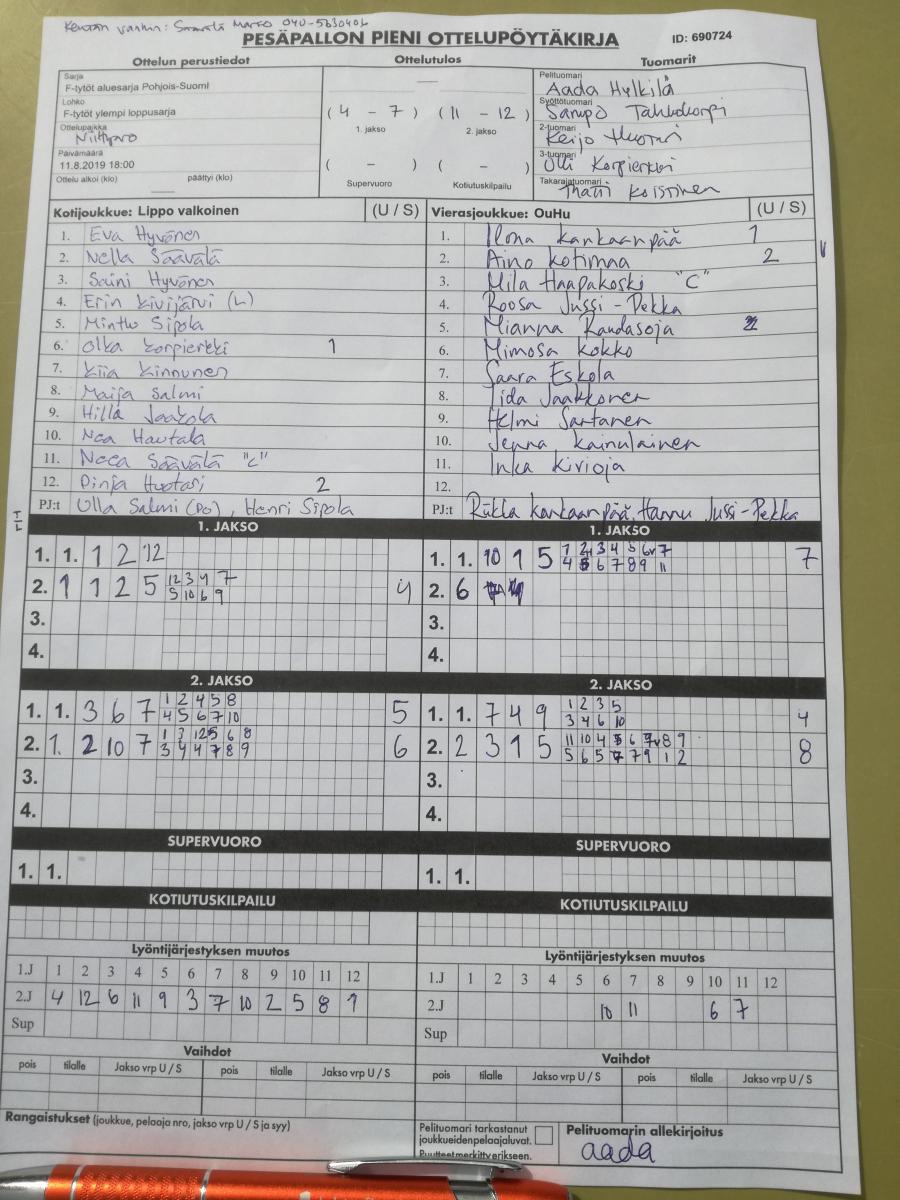 Kentän vanhin: Säävälä Marko
PESÄPALLON PIENI OTTELUPÖYTÄKIRJA
ID: 690724
Ottelun perustiedot
Ottelutulos
Tuomarit
Sarja
F-tytöt aluesarja Pohjois-Suomi
Lohko
F-tytöt ylempi loppusarja
Ottelupaikka
Päivämäärä
11.8.2019 18:00
Ottelu alkoi (klo) päättyi (klo)
( 4 - 7 ) ( 11 - 12 )
1. jakso 2. jakso
( - ) ( - )
Supervuoro Kotiutuskilpailu
Pelituomari
Aada Hylkilä
Syöttötuomari
Sampo Tahkokorpi
2-tuomari
Keijo
3-tuomari
Olli Korpierkki
Takarajatuomari
Matti Koistinen
Kotijoukkue: Lippo valkoinen (U / S)
1. Eva Hyvönen
2. Nella Säävälä
3. Saini Hyvönen
4. Erin Kivijärvi (L)
5. Minttu Sipola
6. Olka Korpierkki 1
7. Kiia Kinnunen
8. Maija Salmi
9. Hilla Jaakola
10. Nea Hautala
11. Neea Säävälä "C"
12. Pinja Huotari 2
PJ:t Ulla Salmi (PO), Henri Sipola
Vierasjoukkue: OuHu (U / S)
1. Ilona Kankaanpää 1
2. Aino Kotimaa 2 V
3. Mila Haapakoski "C"
4. Roosa Jussi-Pekka
5. Mianna Raudasoja
6. Mimosa Kokko
7. Saara Eskola
8. Iida Jaakkonen
9. Helmi Sartanen
10. Jenna Kainulainen
11. Inka Kivioja
12.
PJ:t Riikka Kankaanpää, Hannu Jussi-Pekka
T/L
1. JAKSO
1. 1. 1 2 12
2. 1 1 2 5 12 3 4 7 4
5 10 6 9
3.
4.
1. JAKSO
1. 1. 10 1 5 1 2 3 4 5 6v 7 7
4 5 6 7 8 9 11
2. 6
3.
4.
2. JAKSO
1. 1. 3 6 7 1 2 4 5 8 5
4 5 6 7 10
2. 1. 2 10 7 1 3 12 5 6 8 6
3 4 4 7 8 9
3.
4.
2. JAKSO
1. 1. 7 4 9 1 2 3 5 4
3 4 6 10
2. 2 3 1 5 11 10 4 5 6 7v 8 9 8
5 6 5 7 7 9 1 2
3.
4.
SUPERVUORO
1. 1.
SUPERVUORO
1. 1.
KOTIUTUSKILPAILU
KOTIUTUSKILPAILU
Lyöntijärjestyksen muutos
1.J 1 2 3 4 5 6 7 8 9 10 11 12
2.J 4 12 6 11 9 3 7 10 2 5 8 1
Sup
Lyöntijärjestyksen muutos
1.J 1 2 3 4 5 6 7 8 9 10 11 12
2.J 10 11 6 7
Sup
Vaihdot
pois tilalle Jakso vrp U / S pois tilalle Jakso vrp U / S
Vaihdot
pois tilalle Jakso vrp U / S pois tilalle Jakso vrp U / S
Rangaistukset (joukkue, pelaaja nro, jakso vrp U / S ja syy)
Pelituomari tarkastanut
joukkueidenpelaajaluvat.
Puutteetmerkittyerikseen.
Pelituomarin allekirjoitus
aada